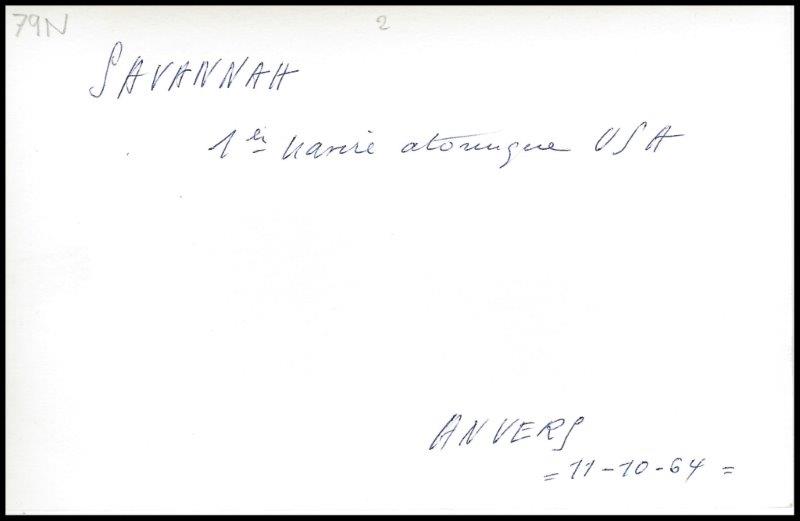 79N
2
SAVANNAH
1er navire atomique USA
ANVERS
= 11-10-64 =